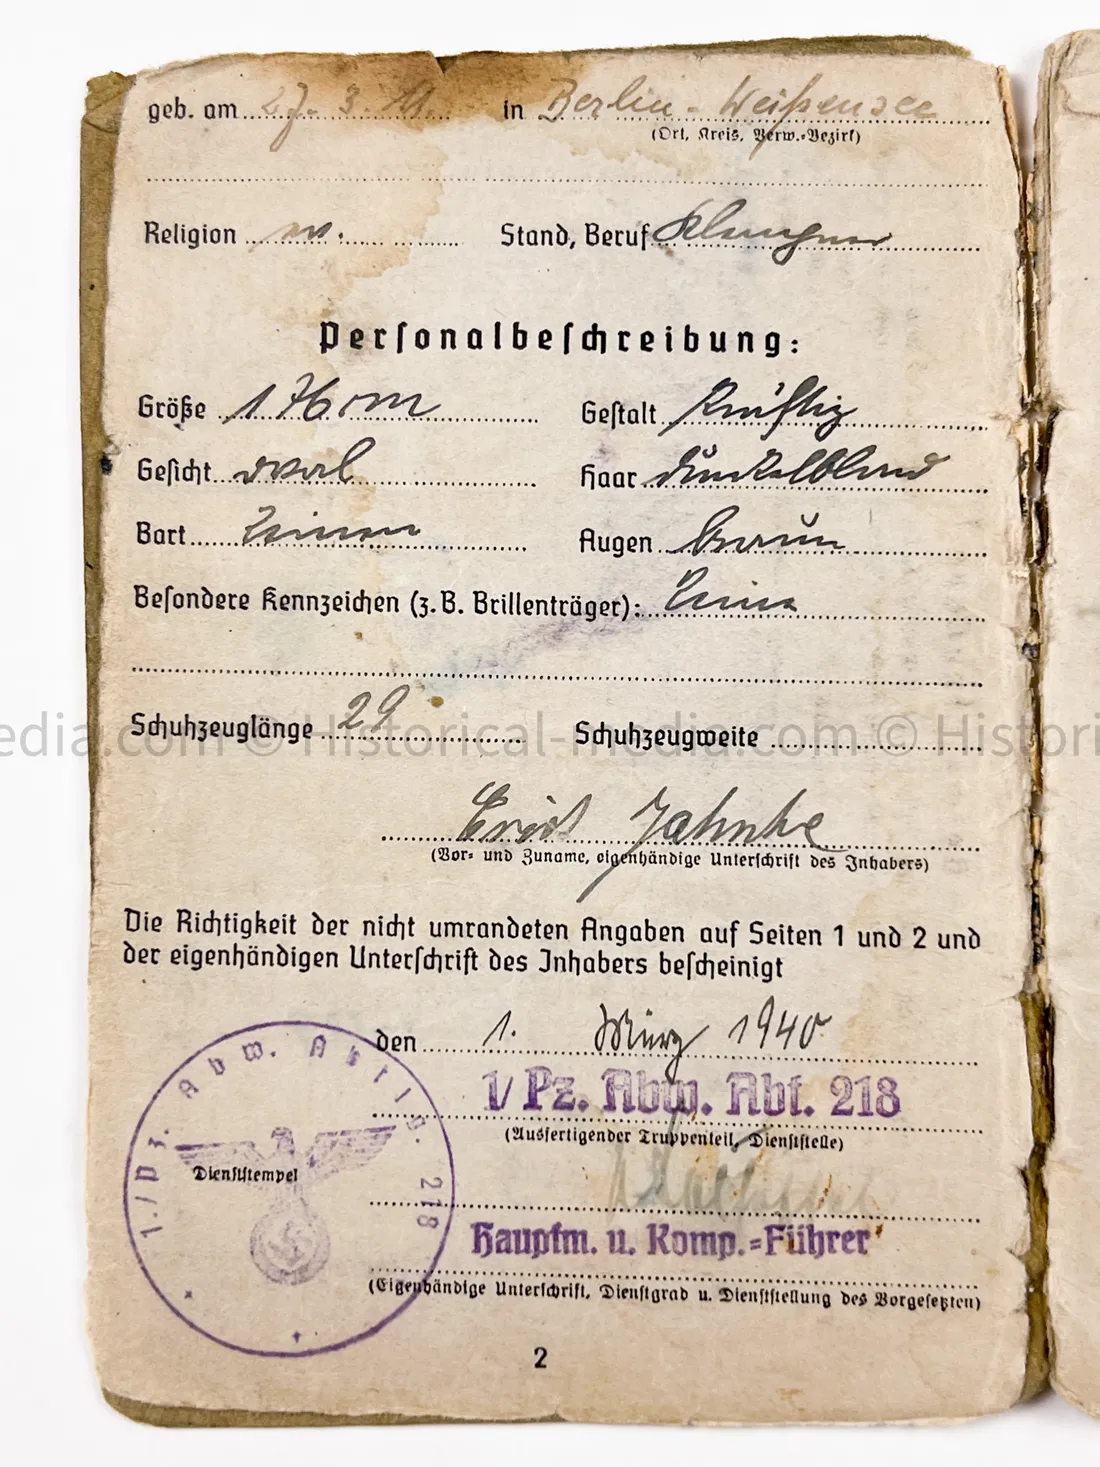 geb. am 27. 3. 11 in Berlin-Weißensee
(Ort, Kreis, Verw.-Bezirk)
Religion ev. Stand, Beruf Klempner
Personalbeschreibung:
Größe 176 cm Gestalt kräftig
Gesicht oval Haar dunkelblond
Bart keinen Augen braun
Besondere Kennzeichen (z. B. Brillenträger): keine
Schuhzeuglänge 29 Schuhzeugweite
edia.com © Historical-media.com © Histori
Erich Jahnke
(Vor- und Zuname, eigenhändige Unterschrift des Inhabers)
Die Richtigkeit der nicht umrandeten Angaben auf Seiten 1 und 2 und
der eigenhändigen Unterschrift des Inhabers bescheinigt
den 1. März 1940
1/ Pz. Abw. Abt. 218
(Ausfertigender Truppenteil, Dienststelle)
1./Pz. Abw. Abtlg. 218
Dienststempel
Hauptm. u. Komp.-Führer
(Eigenhändige Unterschrift, Dienstgrad u. Dienststellung des Vorgesetzten)
2